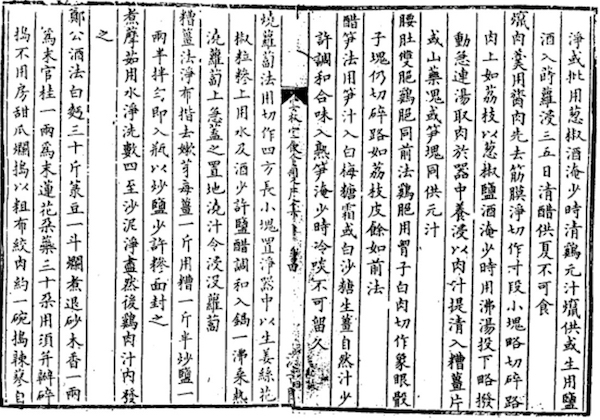 淨或批用葱椒酒淹少時清鷄元汁爁供或生用鹽
酒入蒔蘿浸三五日清醋供夏不可食
爁肉羹用膂肉先去筋膜淨切作寸段小塊略切碎路
肉上如荔枝以葱椒鹽酒淹少時用沸湯投下略撥
動急連湯取肉於器中養浸以肉汁提清入糟薑片
或山藥塊或笋塊同供元汁
腰肚雙脆鷄脆同前法鷄脆用胷子白肉切作象眼骰
子塊仍切碎路如荔枝皮餘如前法
醋笋法用笋汁入白梅糖霜或白沙糖生薑自然汁少
許調和合味入熟笋淹少時冷啖不可留久
燒蘿蔔法用切作四方長小塊置淨器中以生姜絲花
椒粒糝上用水及酒少許鹽醋調和入鍋一沸乘熱
澆蘿蔔上急蓋之置地澆汁令浸没蘿蔔
糟薑法淨布揩去嫩芽每薑一斤用糟一斤半炒鹽一
兩半拌勻即入瓶以炒鹽少許糝面封之
煮摩茹用水淨洗數四至沙泥淨盡然後鷄肉汁内發
之
鄭公酒法白麪三十斤菉豆一斗爛煮退砂木香一兩
爲末官桂一兩爲末蓮花朵蘂三十朵用須并瓣碎
搗不用房甜瓜爛搗以粗布絞肉約一碗搗辣蓼自